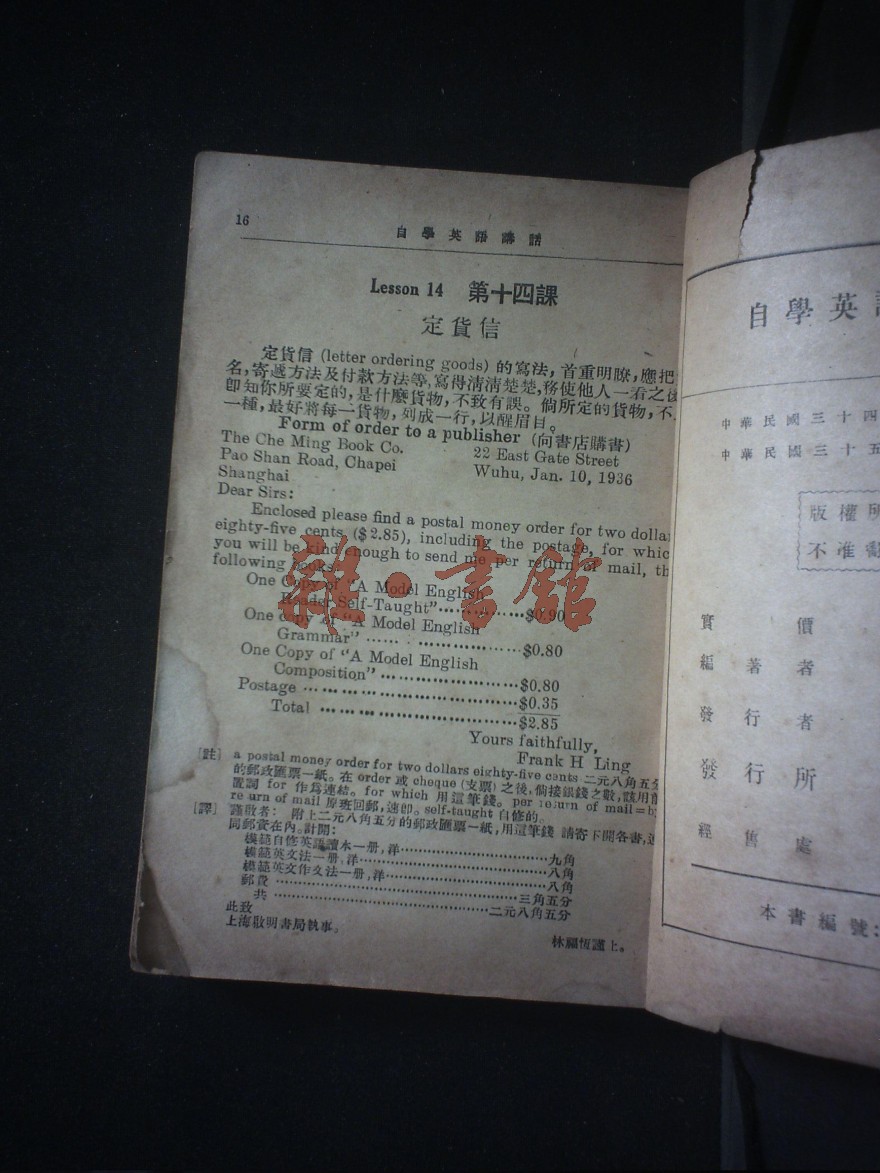 16
自學英語講話
Lesson 14 第十四課
定貨信
定貨信 (letter ordering goods) 的寫法，首重明瞭，應把
名，寄遞方法及付款方法等，寫得清清楚楚，務使他人一看之後
卽知你所要定的，是什麼貨物，不致有誤。倘所定的貨物，不
一種，最好將每一貨物，列成一行，以醒眉目。
Form of order to a publisher (向書店購書)
The Che Ming Book Co. 22 East Gate Street
Pao Shan Road, Chapei Wuhu, Jan. 10, 1936
Shanghai
Dear Sirs:
Enclosed please find a postal money order for two dollar
eighty-five cents ($2.85), including the postage, for which
you will be kind enough to send me per return of mail, th
following books:
One Copy of "A Model English
Reader Self-Taught"..................$0.90
One copy of "A Model English
Grammar" ..................$0.80
One Copy of "A Model English
Composition"..................$0.80
Postage ..................$0.35
Total ..................$2.85
Yours faithfully,
Frank H Ling
[註] a postal money order for two dollars eighty-five cents 二元八角五分
的郵政匯票一紙。在 order 或 cheque (支票) 之後，倘接銀錢之數，該用前
置詞 for 作爲連結。for which 用這筆錢。per return of mail=by
return of mail 原班回郵，速卽。self-taught 自修的。
[譯] 謹啟者：附上二元八角五分的郵政匯票一紙，用這筆錢 請寄下開各書，
同郵資在內。計開：
模範自修英語讀本一册，洋..................九角
模範英文法一册，洋..................八角
模範英文作文法一册，洋..................八角
郵費 ..................三角五分
共 ..................二元八角五分
此致
上海啟明書局執事。
林顯恆謹上。
自學英語
中華民國三十四
中華民國三十五
版權所
不准翻
實價
編著者
發行者
發行所
經售處
本書編號：
雜·書館